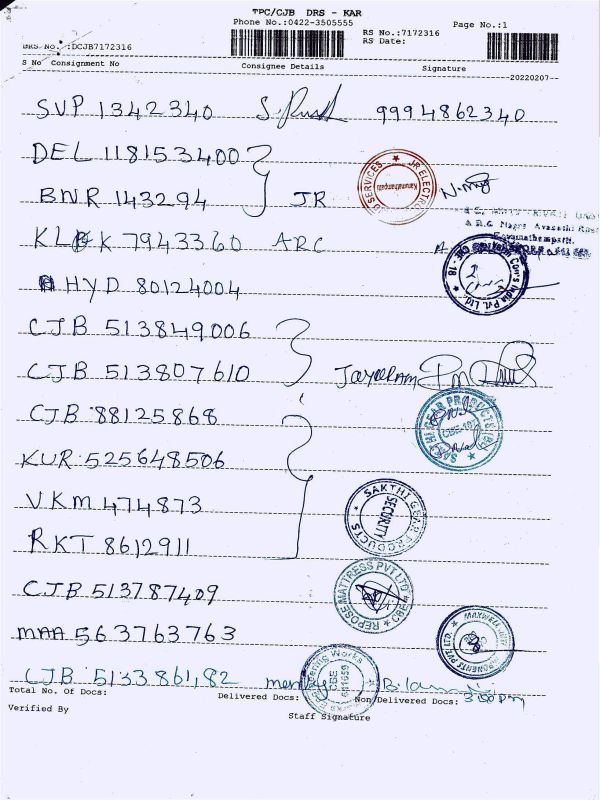 TPC/CJB DRS - KAR
Phone No.:0422-3505555
Page No.:1
DRS No.:DCJB7172316
RS No.:7172316
RS Date:
S No Consignment No Consignee Details Signature
20220207
SVP 1342340 9994862340
DEL 1181533400
BNR 143294 JR
JR ELECTRO SERVICES
KLK 7943360 ARC
HYD 80124004
CJB 513849006
CJB 513807610 Jayaram
CJB 88125868
KUR 525648506
VKM 474873
SAKTHI GEAR PRODUCTS
SECURITY
RKT 8612911
CJB 513787409
REPOSE MATTRESS PVT LTD
CBE
MAA 563763763
CJB 5133861,82
Total No. Of Docs: Delivered Docs: Non Delivered Docs:
Verified By
Staff Signature